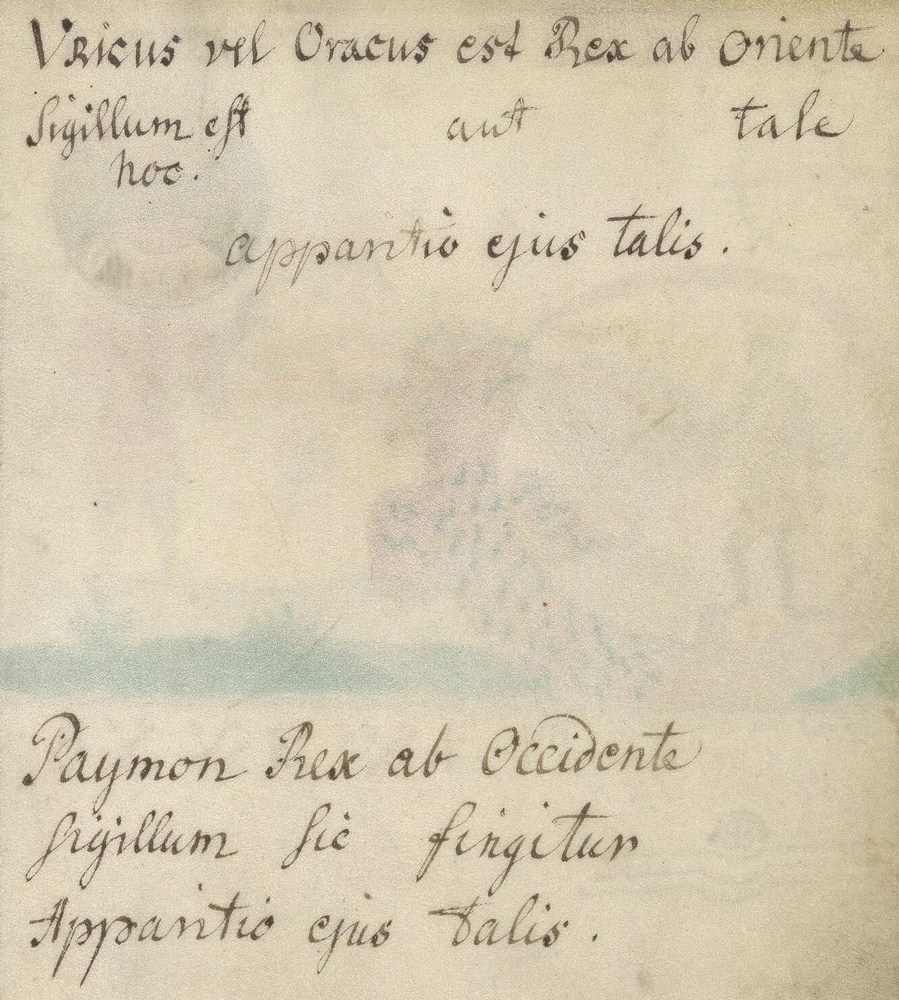 Vricus vel Oracus est Rex ab Oriente
Sigillum est aut tale
hoc.
apparitio ejus talis.
Paymon Rex ab Occidente
Sigillum sic fingitur
Apparitio ejus talis.